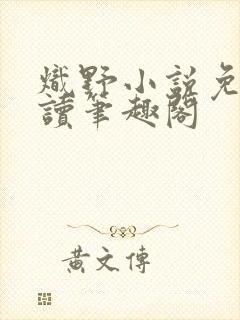 熾野小說免
讀筆趣閣
黃文傳